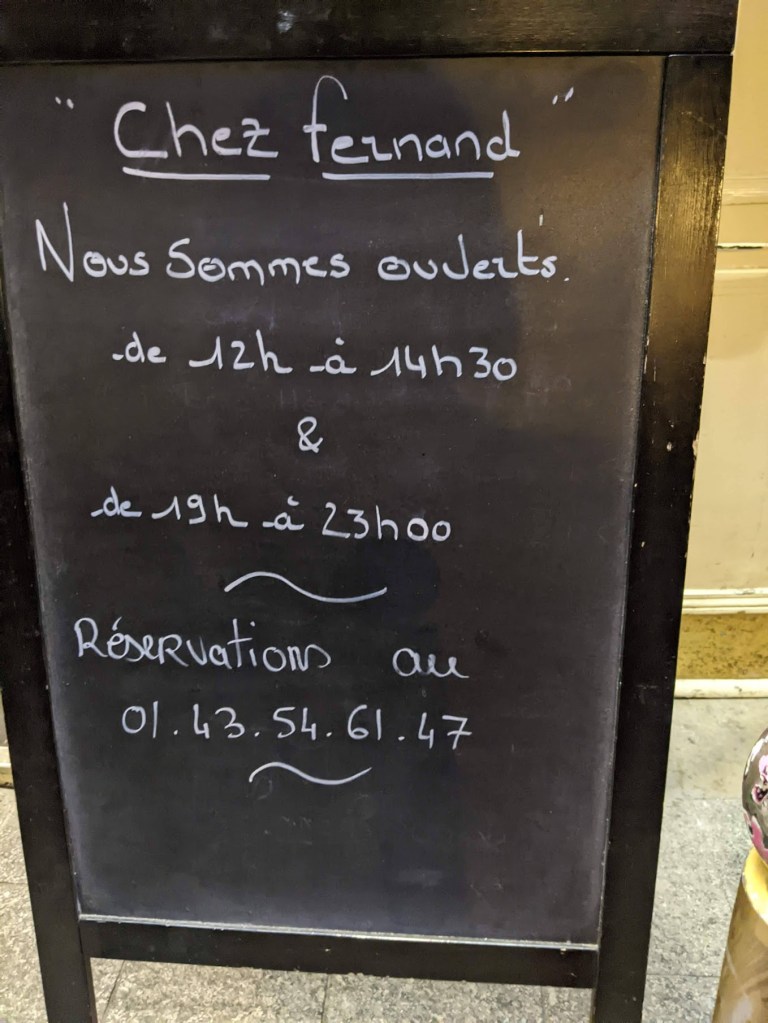 " Chez fernand "
Nous Sommes ouverts.
de 12h à 14h30
&
de 19h à 23h00
Réservations au
01.43.54.61.47